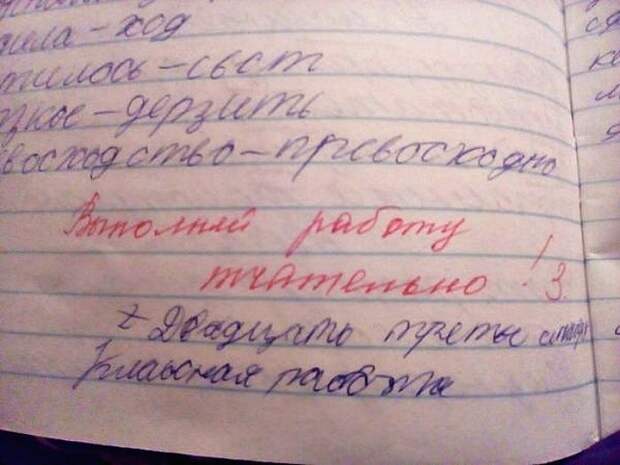 ила – ход
тилось – свет
зкое – дерзить
восходство – превосходно
Выполняй работу
тчательно! 3.
Двадцать третье
Классная работа